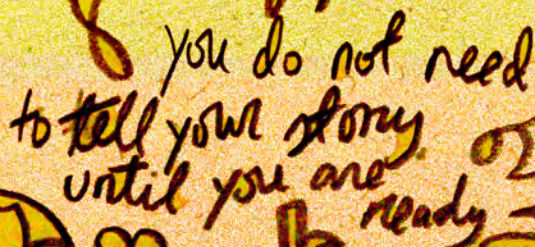 you do not need
to tell your story
until you are
ready